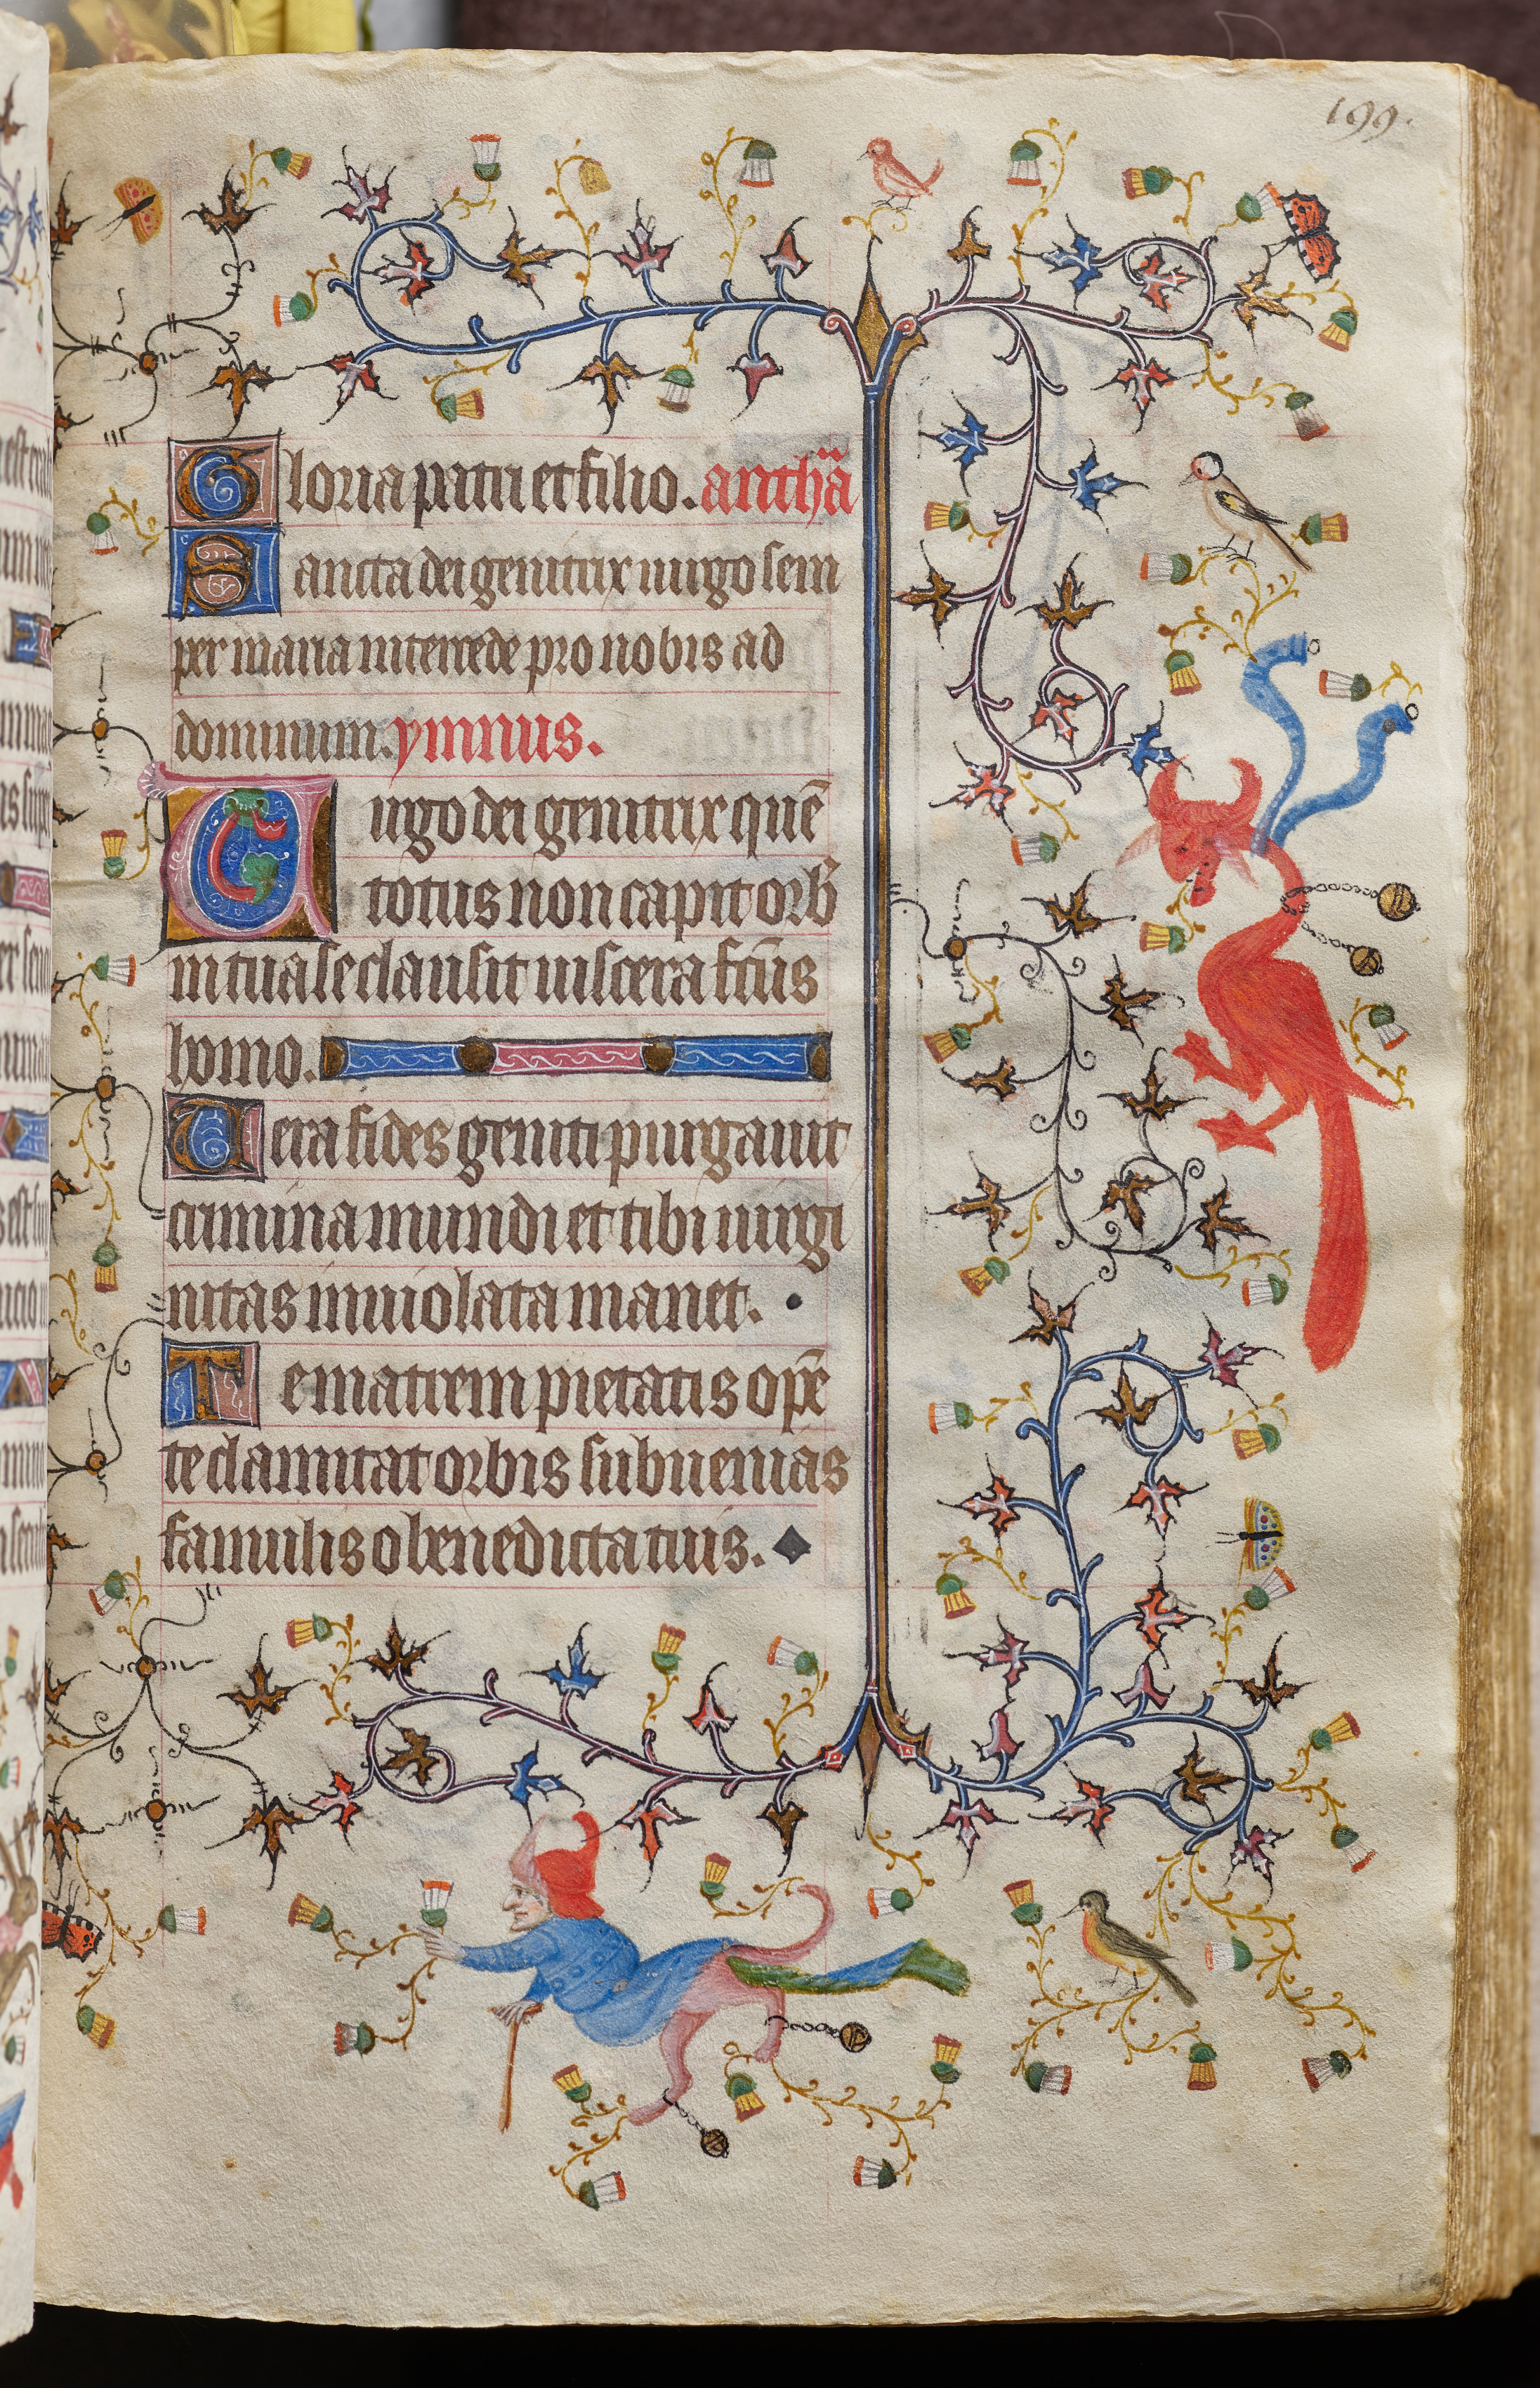 199.
Gloria patri et filio. anthā
Sancta dei genitrix uirgo sem
per maria intercede pro nobis ad
dominum. ymnus.
Uirgo dei genitrix quē
totus non capit orbꝰ
in tua se clausit uiscera fc̄us
homo.
Uera fides geniti purgauit
crimina mundi et tibi uirgi
nitas inuiolata manet.
Te matrem pietatis opē
te clamitat orbis subuenias
famulis o benedicta tuis.